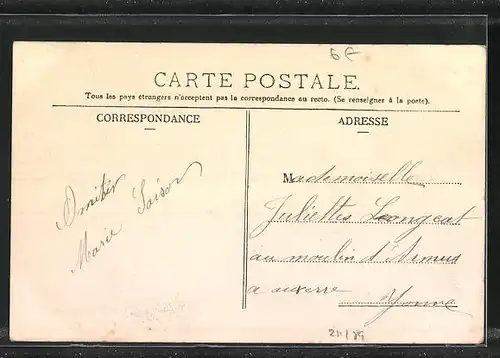 6F
CARTE POSTALE.
Tous les pays étrangers n'acceptent pas la correspondance au recto. (Se renseigner à la poste).
CORRESPONDANCE
ADRESSE
Marie
Mademoiselle
Juliette
au moulin d'
a auxerre
Yonne